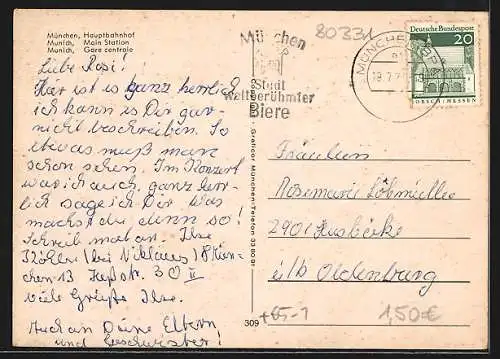 München, Hauptbahnhof
Munich, Main Station
Munich, Gare centrale
Liebe Rosi!
Hier ist es ganz herrlich
ich kann es Dir gar-
nicht beschreiben. So
etwas muß man
schon sehen. Im Konzert
war ich auch, ganz herr-
lich sage ich Dir. Was
machst du denn so?
Schreib mal an. Ilse
bei Niklaus, 8 Mün-
chen-13 Heßstr. 30 II
viele Grüße Ilse.
Auch an Deine Eltern
und Geschwister!
Graficor München-Telefon 33 80 91
309
München
Stadt
weltberühmter
Biere
80331
MÜNCHEN
Deutsche Bundespost
20
LORSCH/HESSEN
Fräulein
Rosemarie
2901
i/b Oldenburg
1,50 €